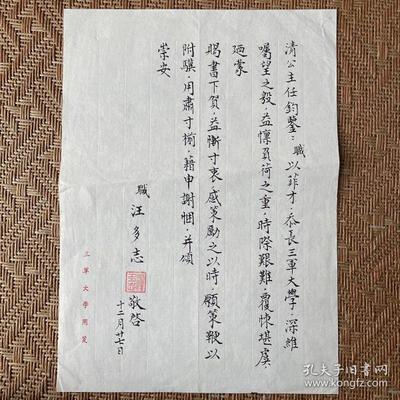 清公主任鈞鑒：職以菲才，忝長三軍大學，深維
囑望之殷，益懍負荷之重，時際艱難，覆悚堪虞
迺蒙
賜書下賀，益慚寸衷，感策勵之以時，願策鞭以
附驥，用肅寸楮，藉申謝悃，并頌
崇安
職 汪多志 敬啓
十二月廿七日
三軍大學用箋
孔夫子旧书网
book.kongfz.com